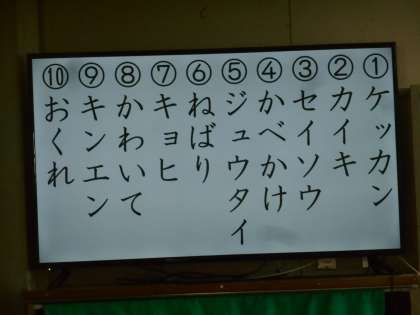 ①ケッカン
②カイキ
③セイソウ
④かべかけ
⑤ジュウタイ
⑥ねばり
⑦キョヒ
⑧かわいて
⑨キンエン
⑩おくれ